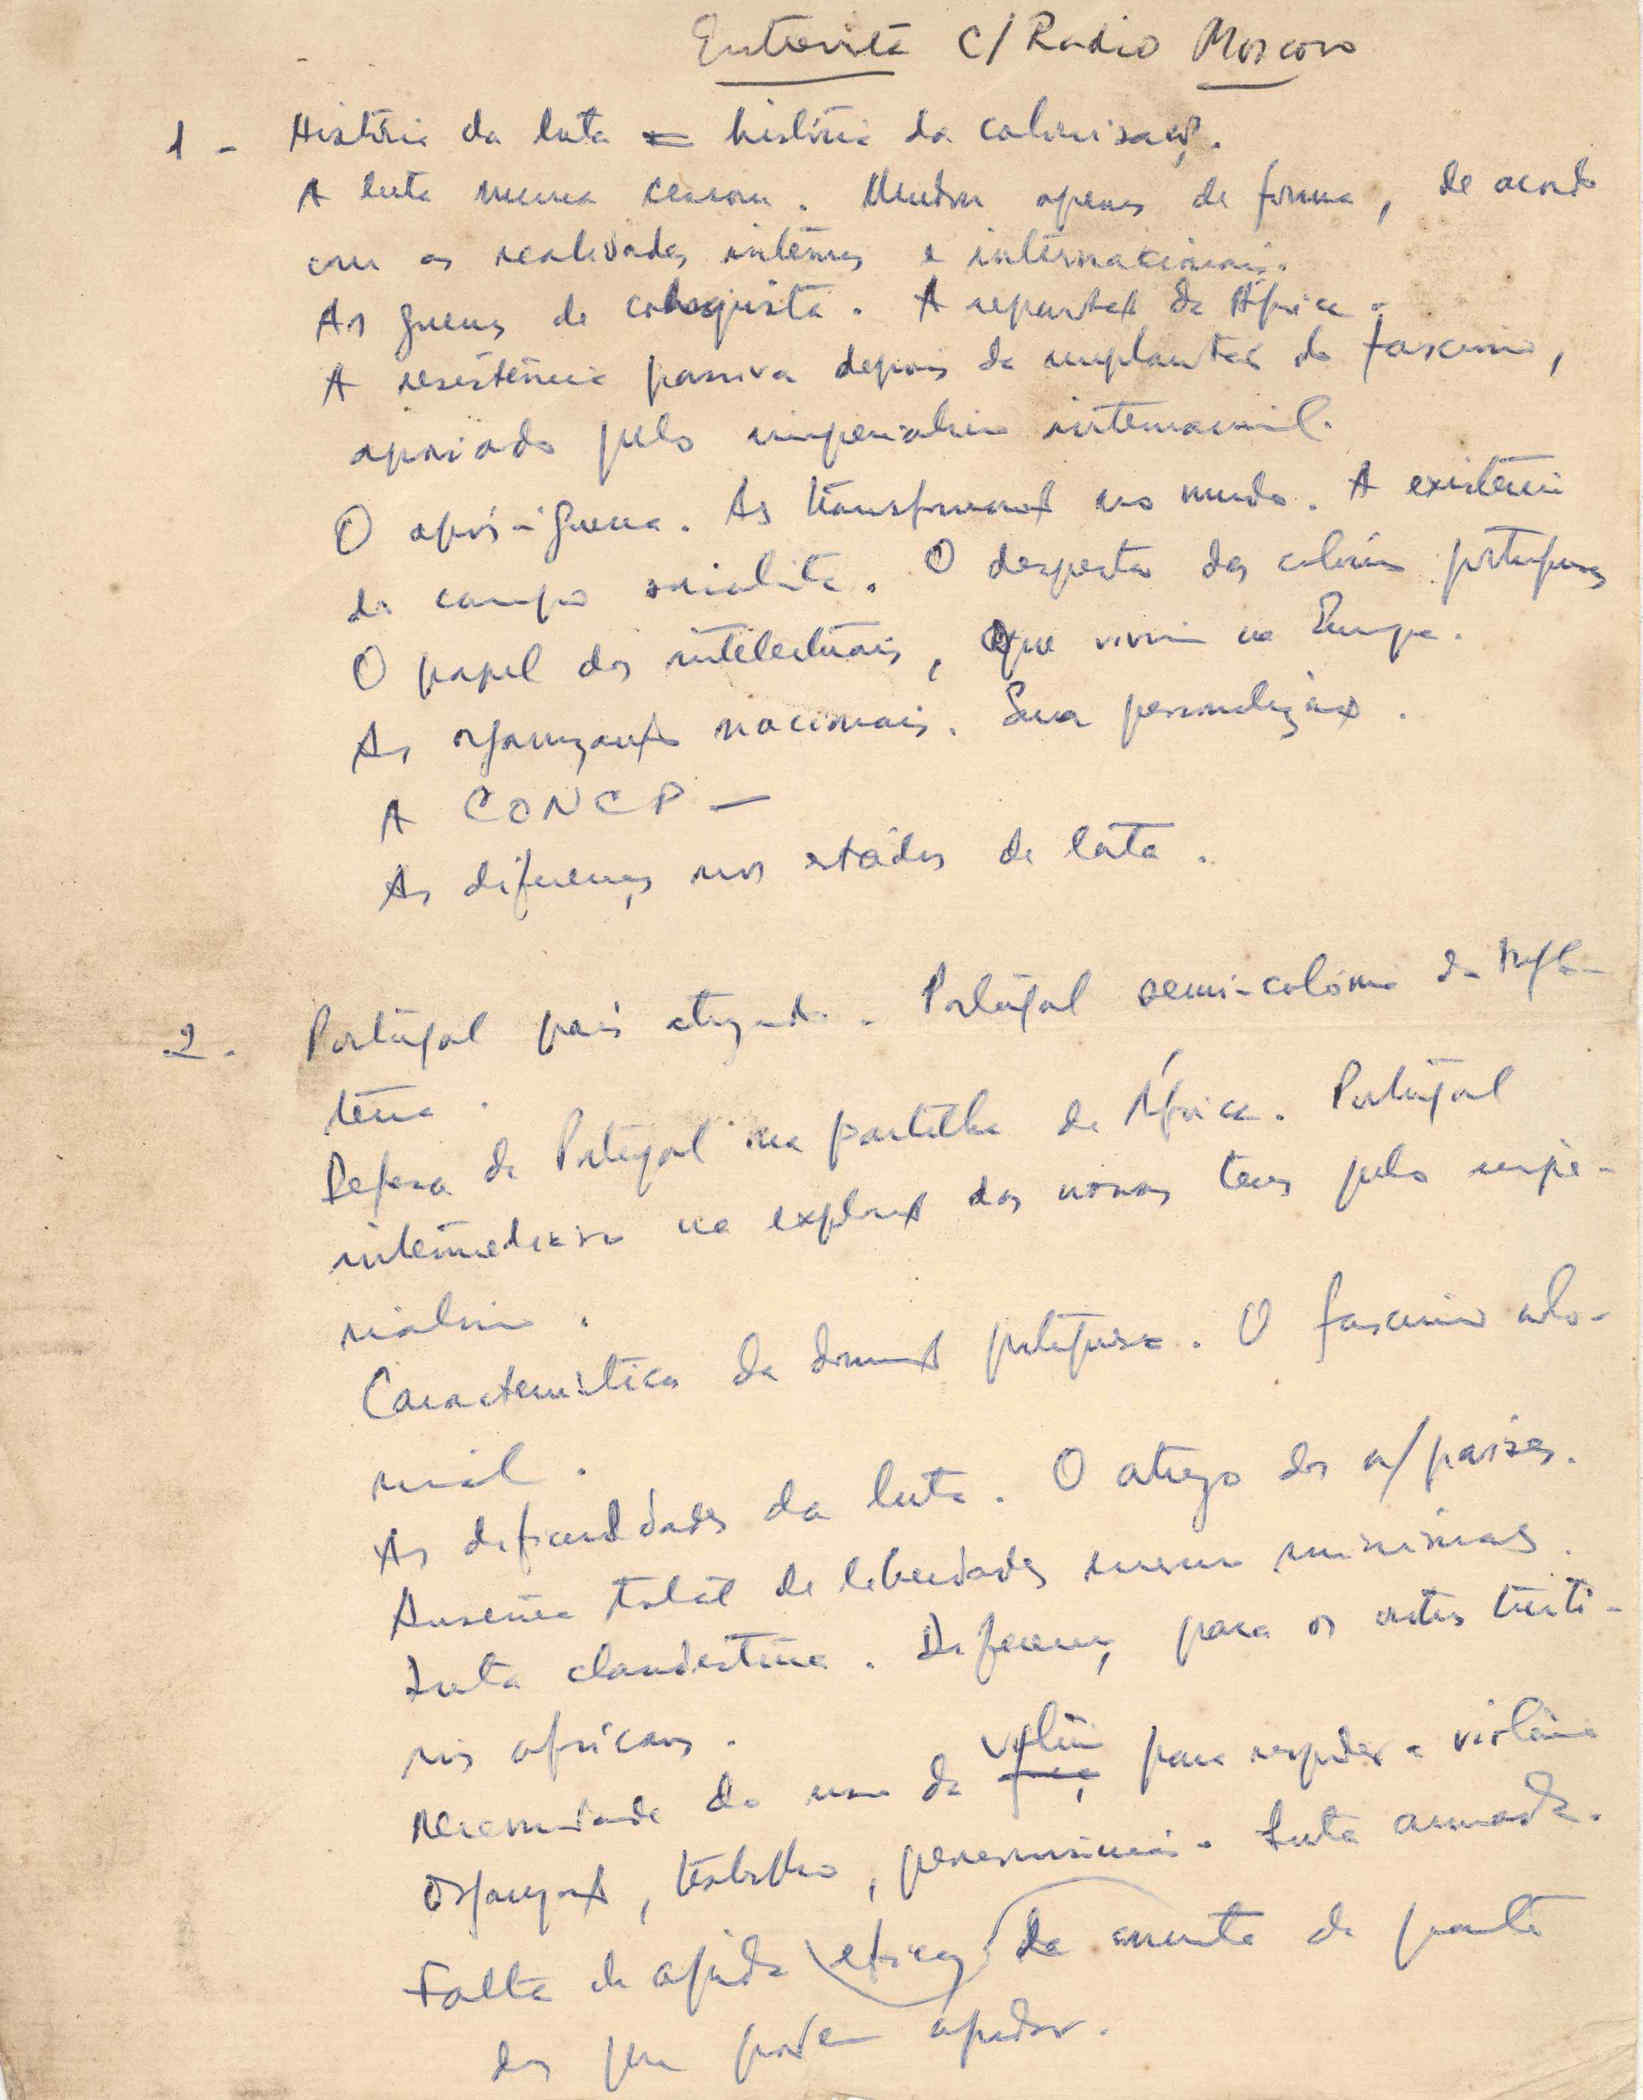 Entrevista c/ Radio Moscovo
1 - História da luta = história da colonisação.
A luta nunca cessou. Mudou apenas de forma, de acordo
com as realidades internas e internacionais.
As guerras de conquista. A repartição da África.
A resistência passiva depois da implantação do fascismo,
apoiado pelo imperialismo internacional.
O após-guerra. As transformações no mundo. A existência
do campo socialista. O despertar das colónias portuguesas
O papel dos intelectuais, que vivem na Europa.
As organizações nacionais. Sua personalização.
A CONCP —
As diferenças nos estádios de luta.
2. Portugal país atrazado. Portugal semi-colónia da Ingla-
terra.
Defesa de Portugal na partilha de África. Portugal
intermediário na exploração das nossas terras pelo impe-
rialismo.
Caracteristicas da dominação portuguesa. O fascismo colo-
nial.
As dificuldades da luta. O atrazo dos n/ países.
Ausência total de liberdades mesmo minimas.
Luta clandestina. Diferença para os outros territó-
rios africanos.
Necessidade do uso da força violência para responder a violência
Organização, trabalho, perseverância. Luta armada.
Falta de ajuda eficaz da parte
dos que podem ajudar.